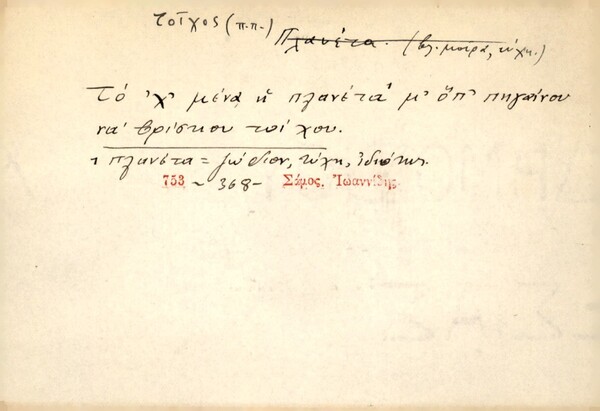 τοῖχος (π.π.)
Πλανέτα. (βλ. μοίρα, τύχη.)
Τὄ 'χ' μένα ἡ πλανέτα¹ μ' ὅπ' πηγαίνου
νὰ βρίσκου τοίχου.
1 πλανέτα = ζώδιον, τύχη, ἰδιότης.
753 ~ 368 - Σάμος, Ἰωαννίδης.